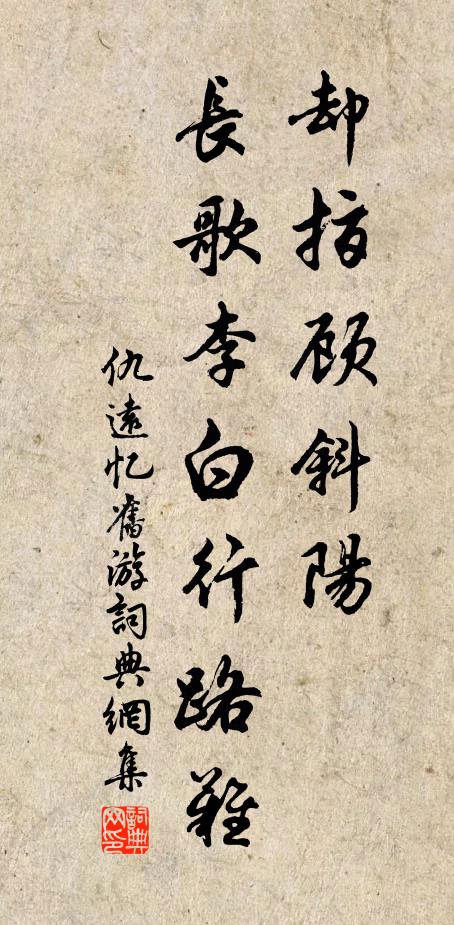 却指顾斜陽
長歌李白行路難
仇遠忆舊游詞典網集
詞典网印